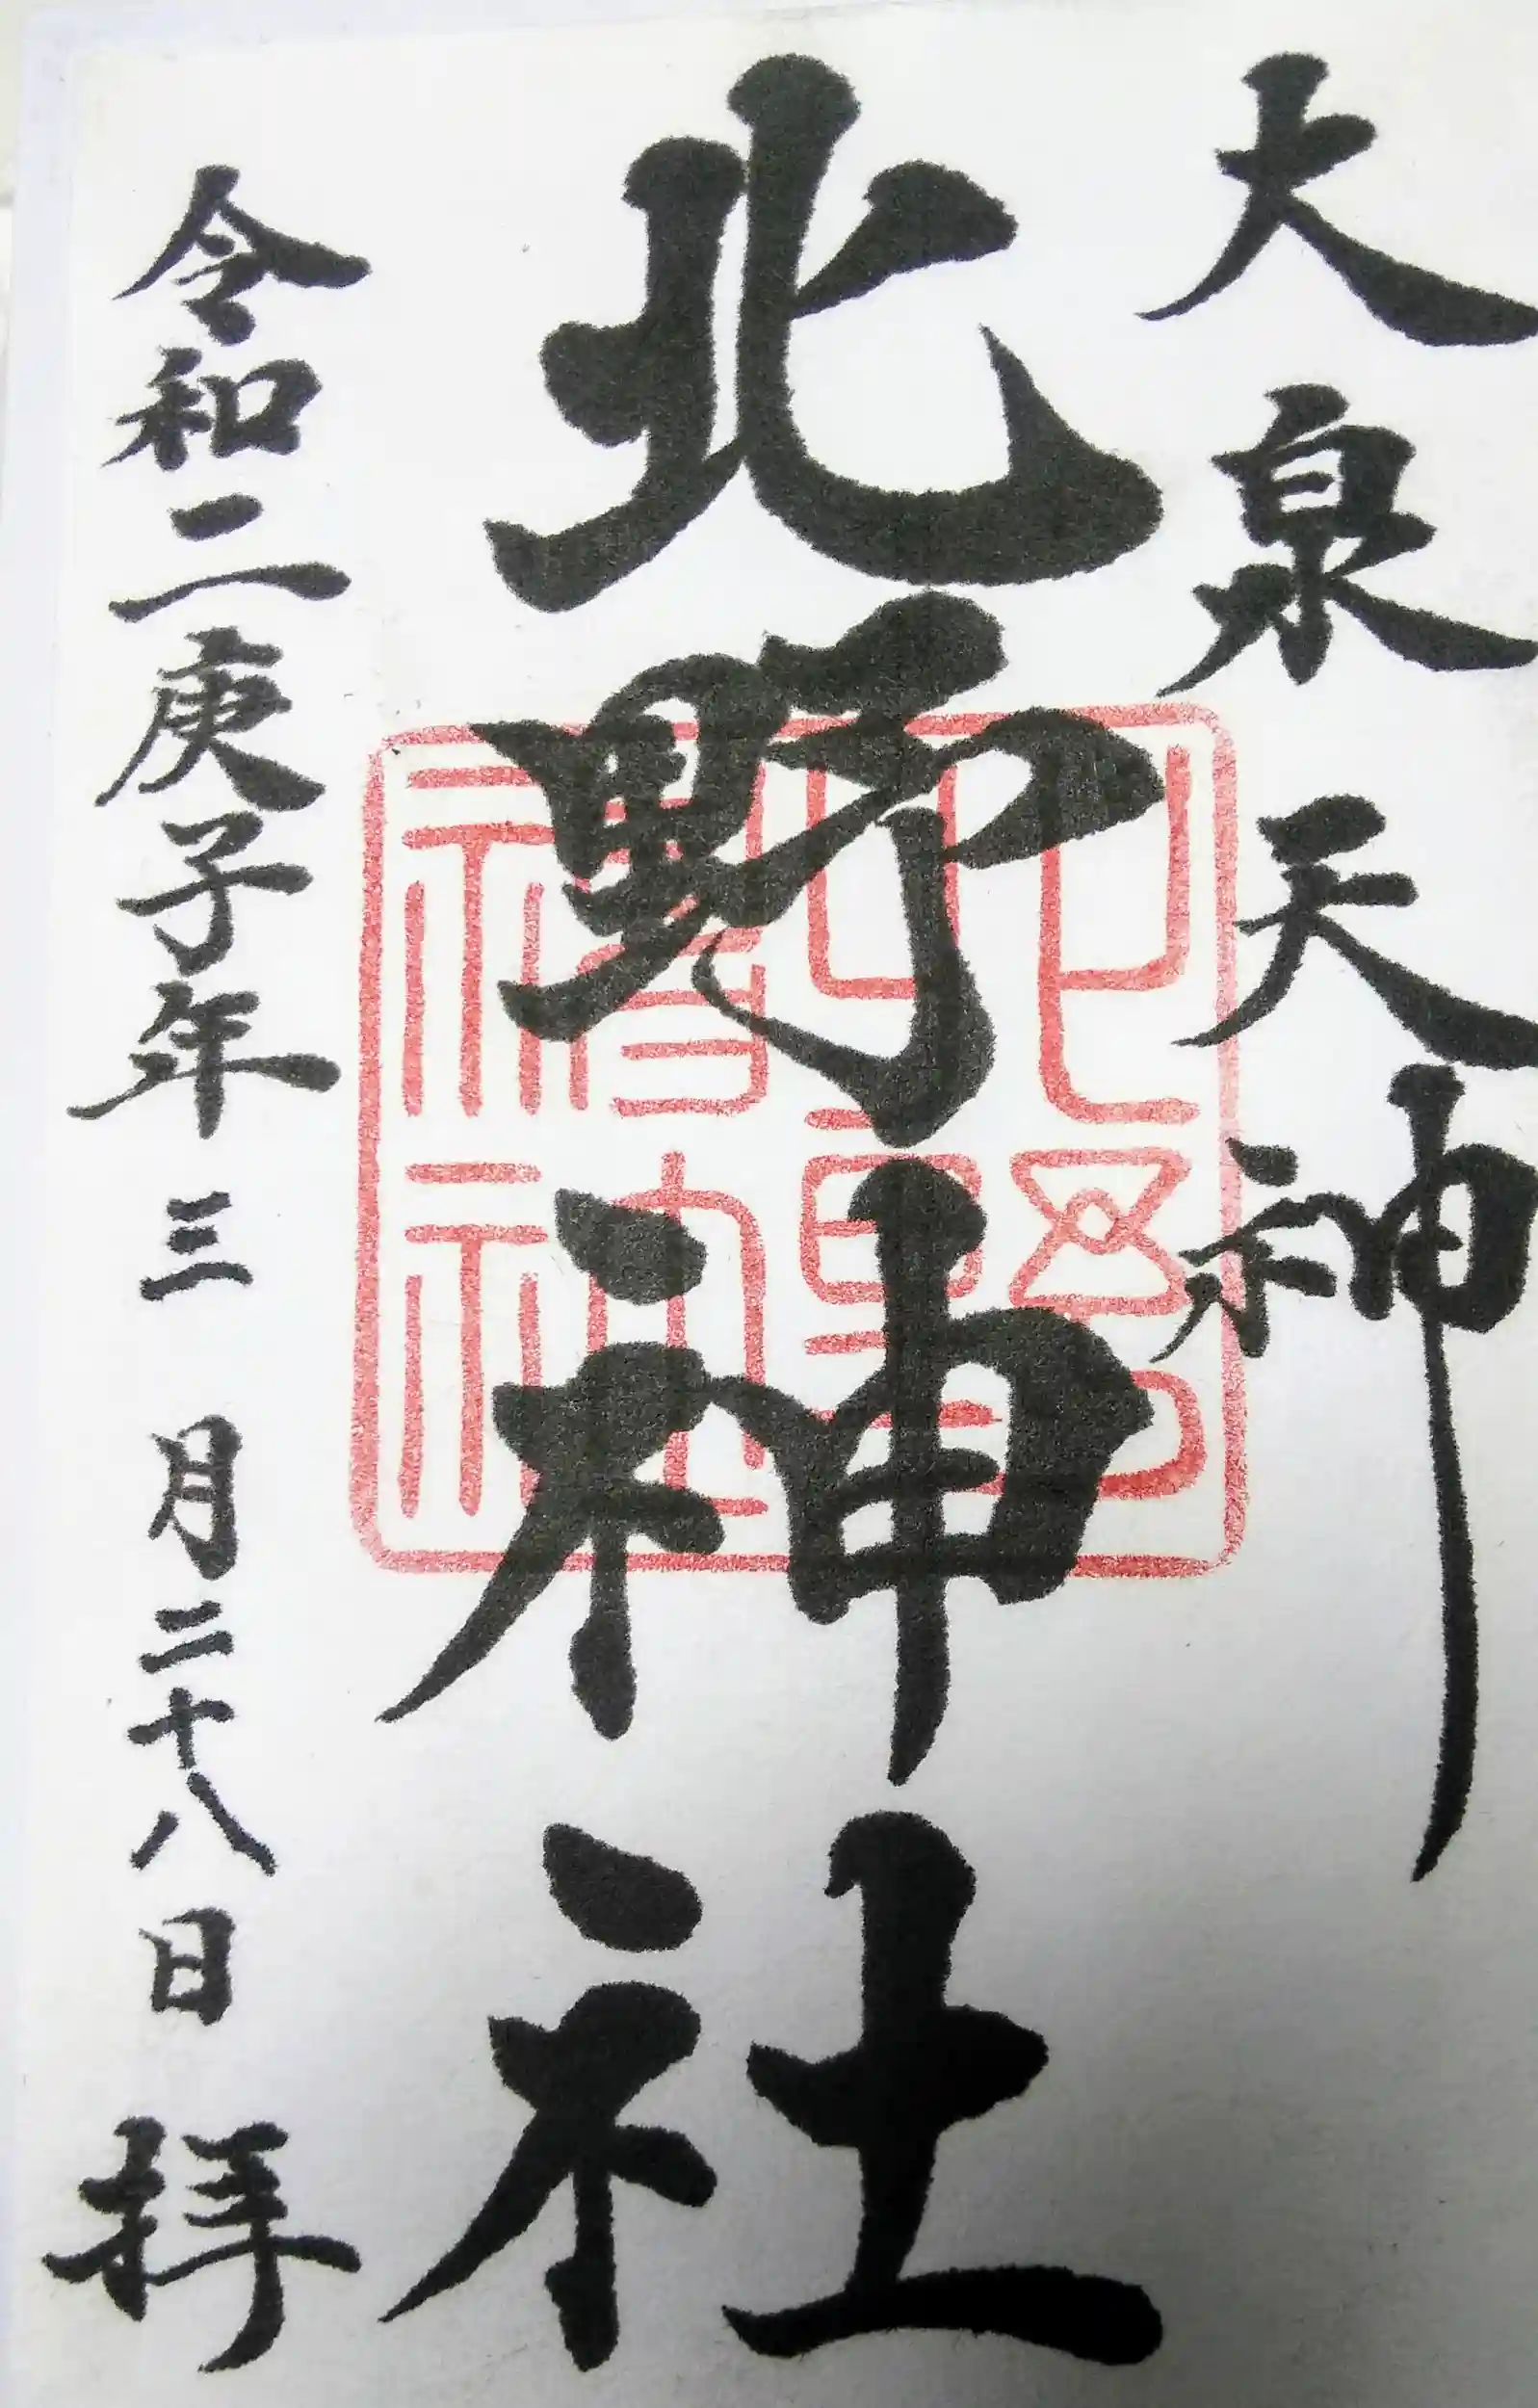 大泉天神
北野神社
令和二庚子年三月二十八日 拝